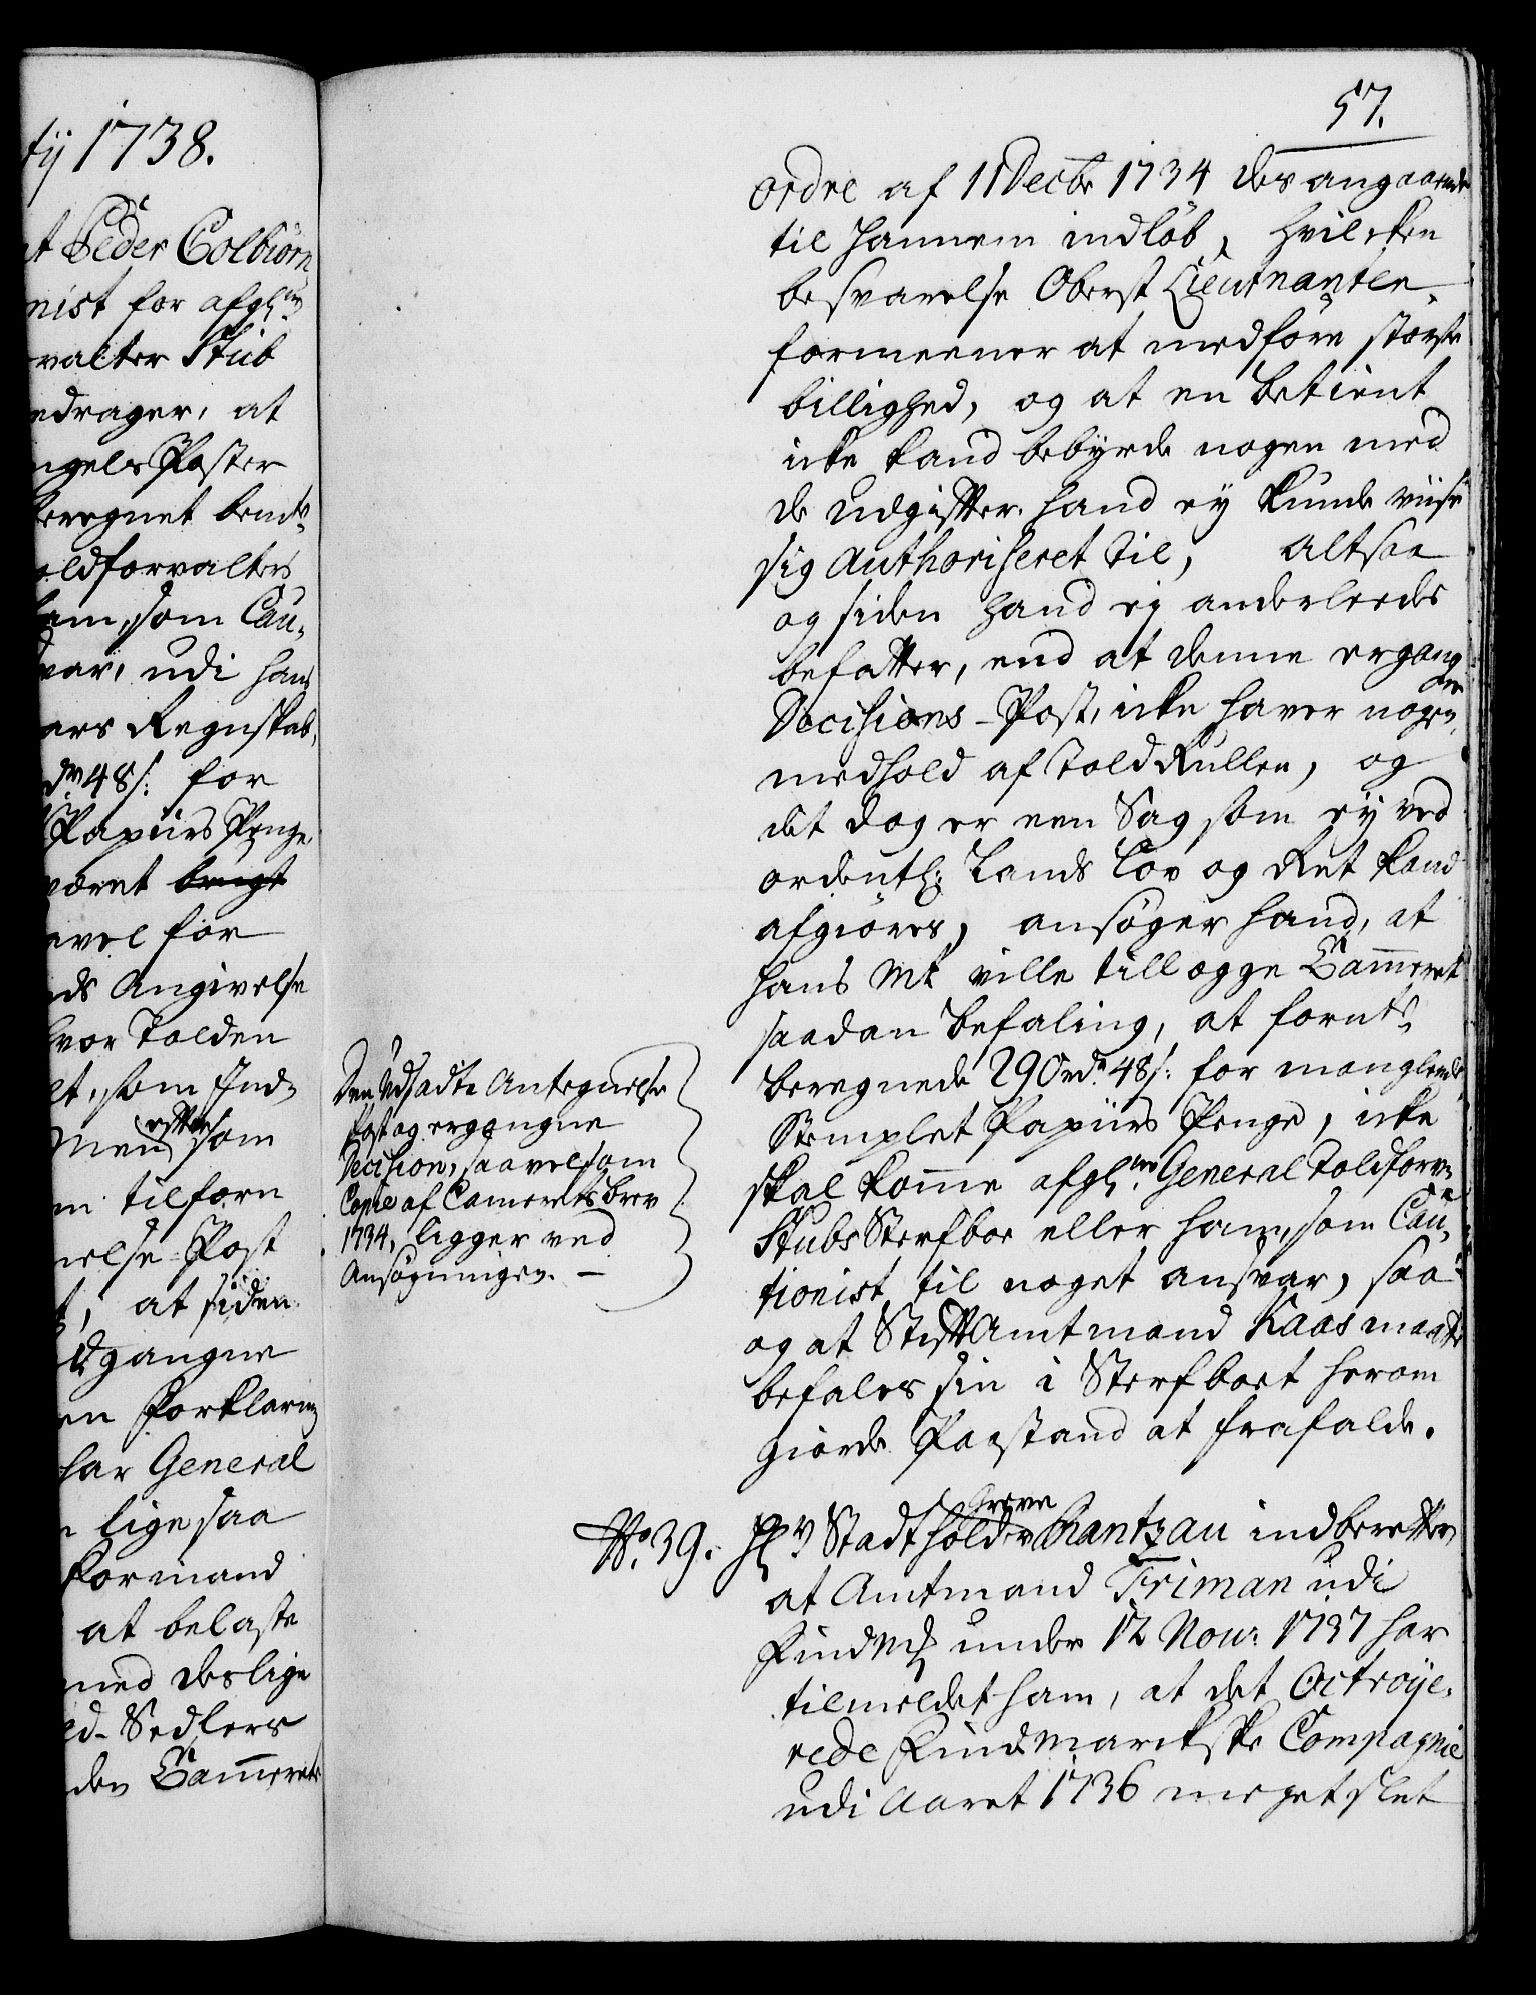 tÿ 1738.
t Peder Colbiörn
nist for afg:
valter Stub
edrager, at
ngels Poster
beregnet bemte
oldforvalters
ham, som Cau-
var, udi hans
ars Regnskab,
48 s: for
Papiirs Penge
været brugt
avel for
nds Angivelse
hvor Tolden
et, som Ind-
Mens efter som
m tilforn
nelse-Post
t, at siden
udgangne
en Forklaring
har General
n lige saa
Formand
at belaste
med deslige
ed-Sedlers
den Cam̄erets
57.
ordre af 11 Decbr 1734 des angaaende
til hannem indløb, hvilcken
besvarelse Oberst Lieutnanten
formeener at medføre største
billighed, og at en betient
icke kand bebyrde nogen med
de Udgifter hand ey kunde viise
sig Authoriseret til, altsaa
og siden hand ey anderleedes
befatter, end at denne ergang
ne
Decisions-Post, icke haver nogen
medhold af Told Rullen, og
det dog er een Sag som ey ved
ordentl: Lands Lov og Ret kand
afgiøres, ansøger hand, at
hans Mt ville tillegge Cam̄eret
saadan Befaling, at fornte
beregnede 290 rd 48 s: for manglende
Stemplet Papiirs Penge, icke
skal kom̄e afg: General Toldforv:
Stubs Sterfboe eller ham, som Cau-
tionist til noget ansvar, saa
og at Stift Amtmand Kaas maatte
befales sin i Sterfboet herom
giorde Paastand at frafalde.
Den Udsadte Antegnelse
Post og ergangne
Decision, saavelsom
Copie af Camerets brev
1734, ligger ved
Ansøgningen. –
No. 39. Hr Stadtholder Greve Rantzau indberetter,
at Amtmand Friman udi
Findm: under 12 Nov: 1737 har
tilmeldet ham, at det Octroÿe-
rede Findmarckske Compagnie
udi Aaret 1736 meget slet